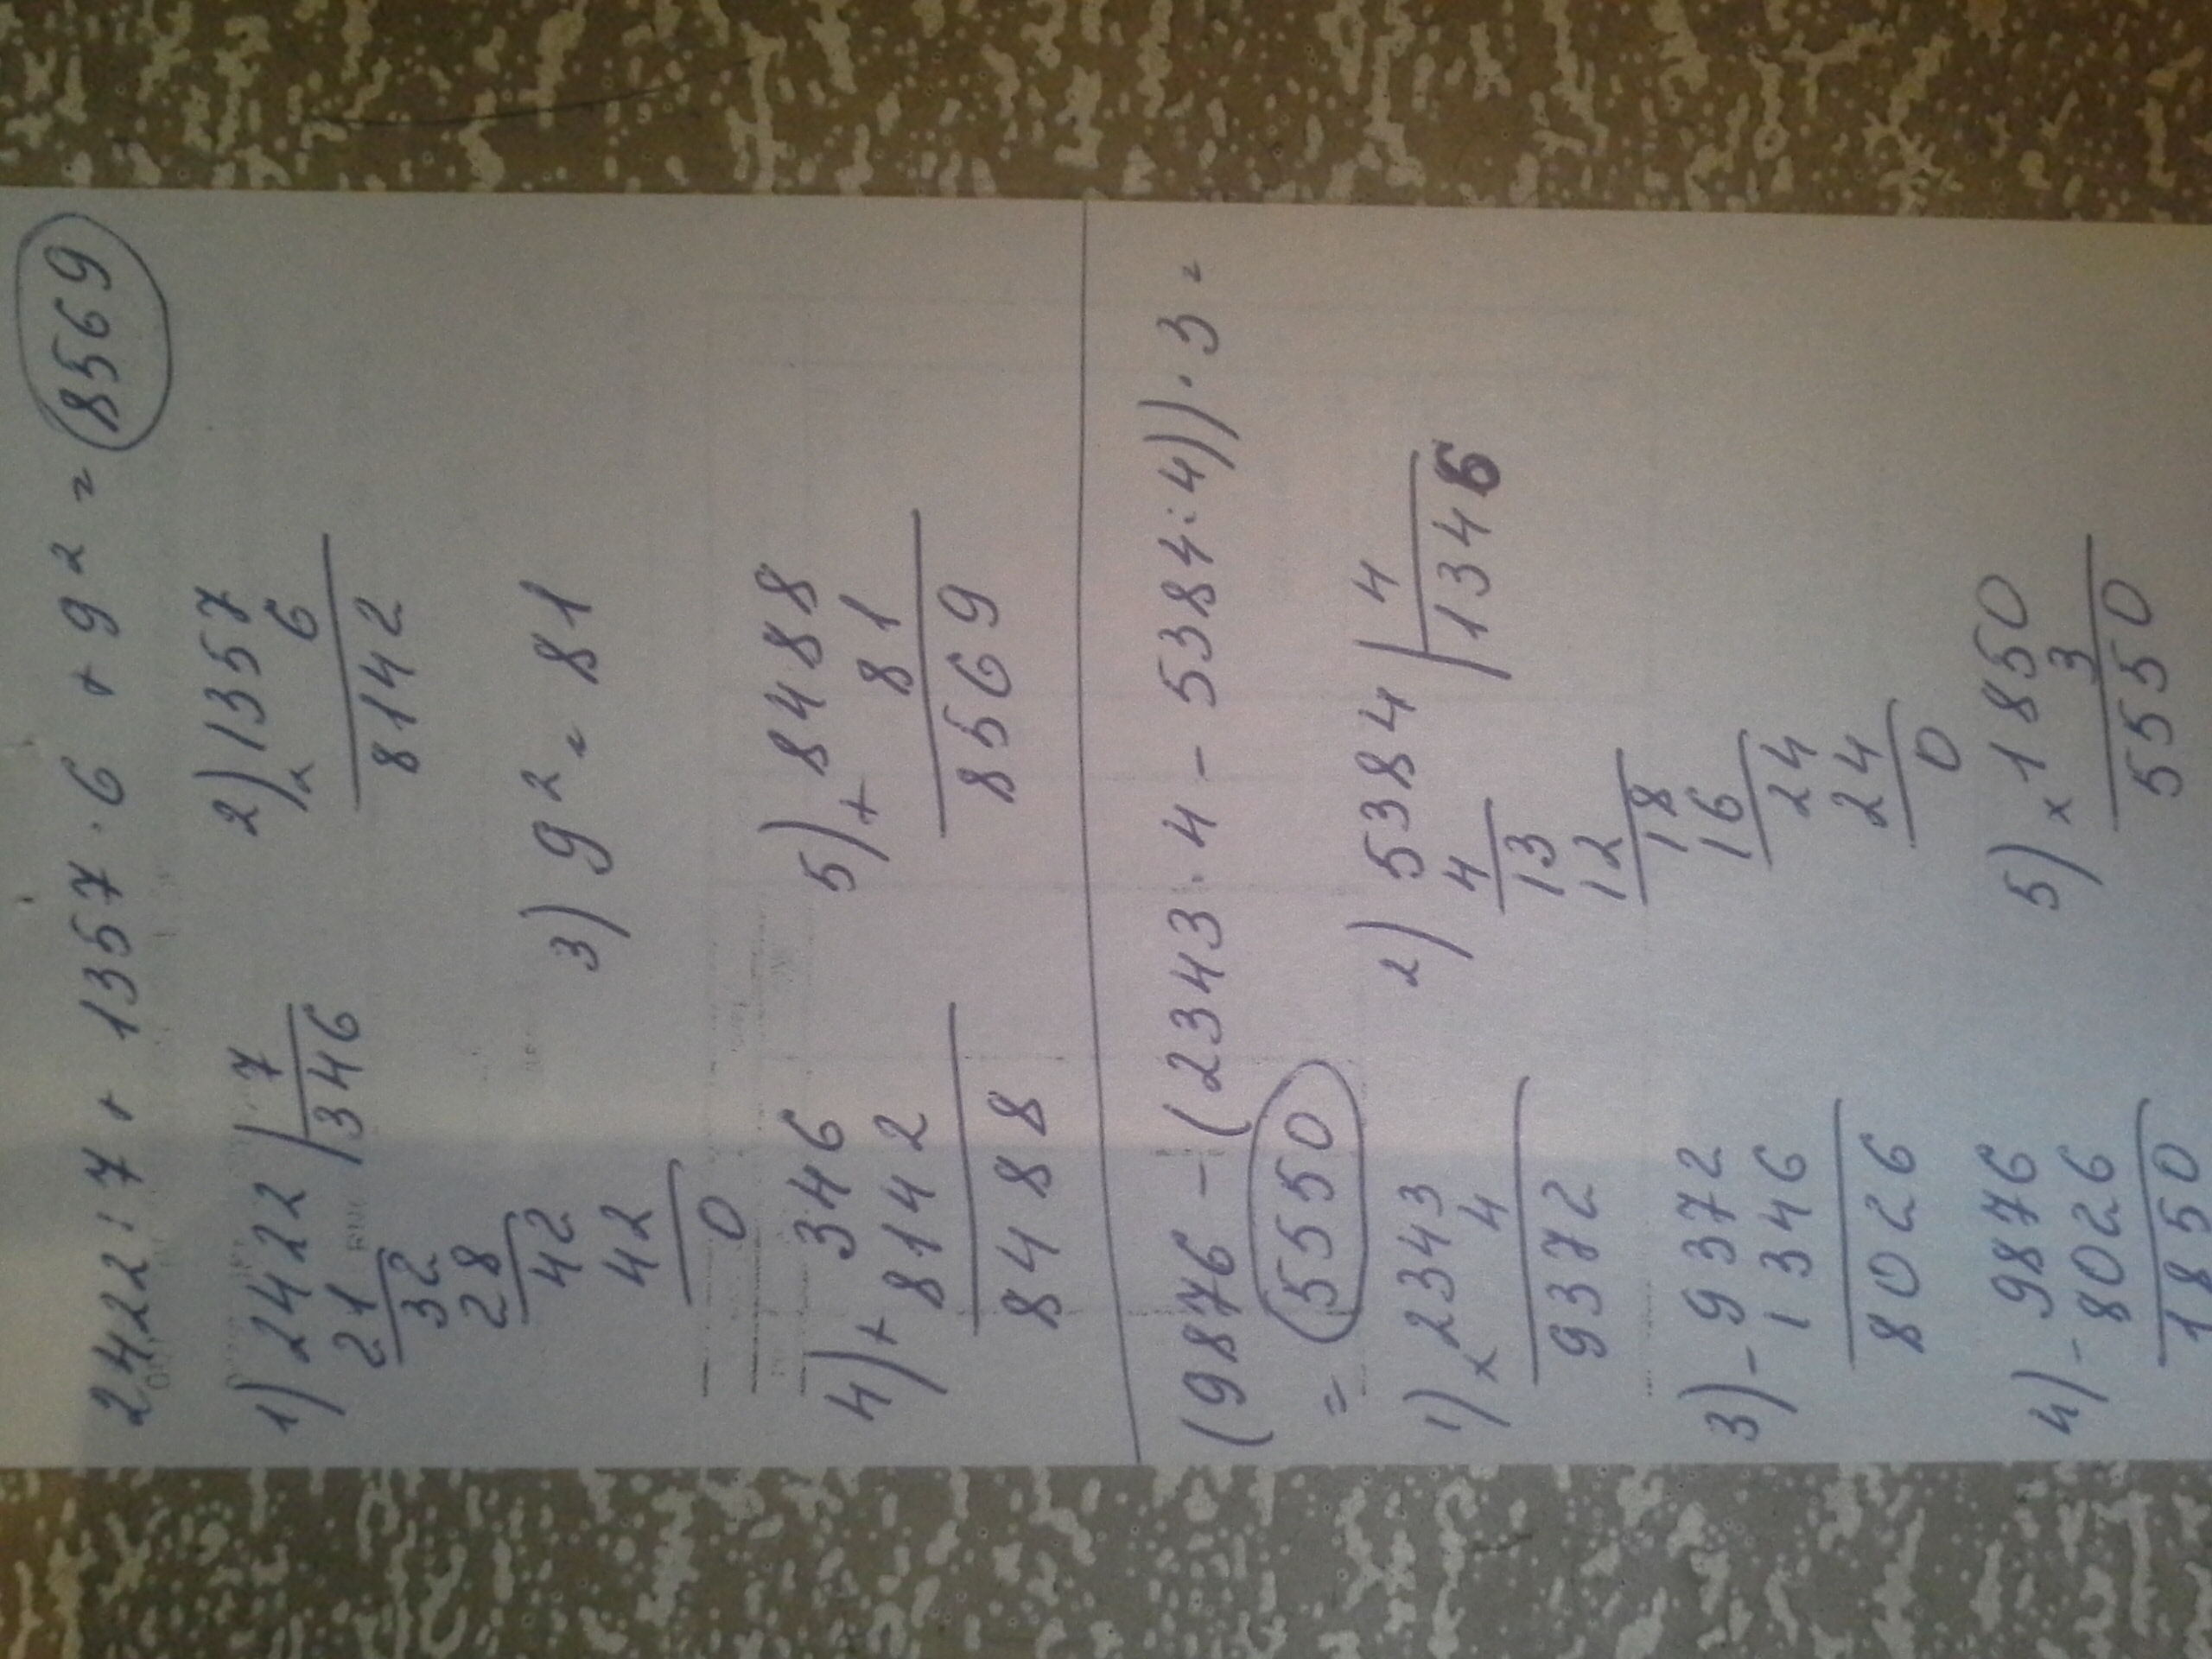 2422 : 7 + 1357 · 6 + 9² = 8569
1) 2422 | 7
21 | 346
32
28
42
42
0
2) × 1357
6
8142
3) 9² = 81
4) + 346
8142
8488
5) + 8488
81
8569
(9876 - (2343 · 4 - 5384 : 4)) · 3 =
= 5550
1) × 2343
4
9372
2) 5384 | 4
4 | 1346
13
12
18
16
24
24
0
3) - 9372
1346
8026
4) - 9876
8026
1850
5) × 1850
3
5550